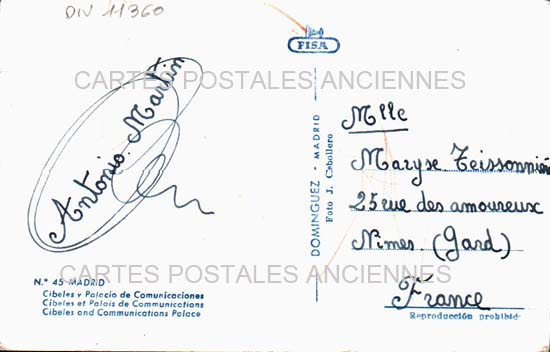 DIV 11360
FISA
CARTES POSTALES ANCIENNES
Antonio. Martin
Mlle
Maryse. Teissonnière
25 rue des amoureux
Nimes. (Gard)
France
DOMINGUEZ - MADRID
Foto J. Caballero
N.º 45-MADRID
CARTES POSTALES ANCIENNES
Cibeles y Palacio de Comunicaciones
Cibeles et Palais de Communications
Cibeles and Communications Palace
Reproducción prohibid